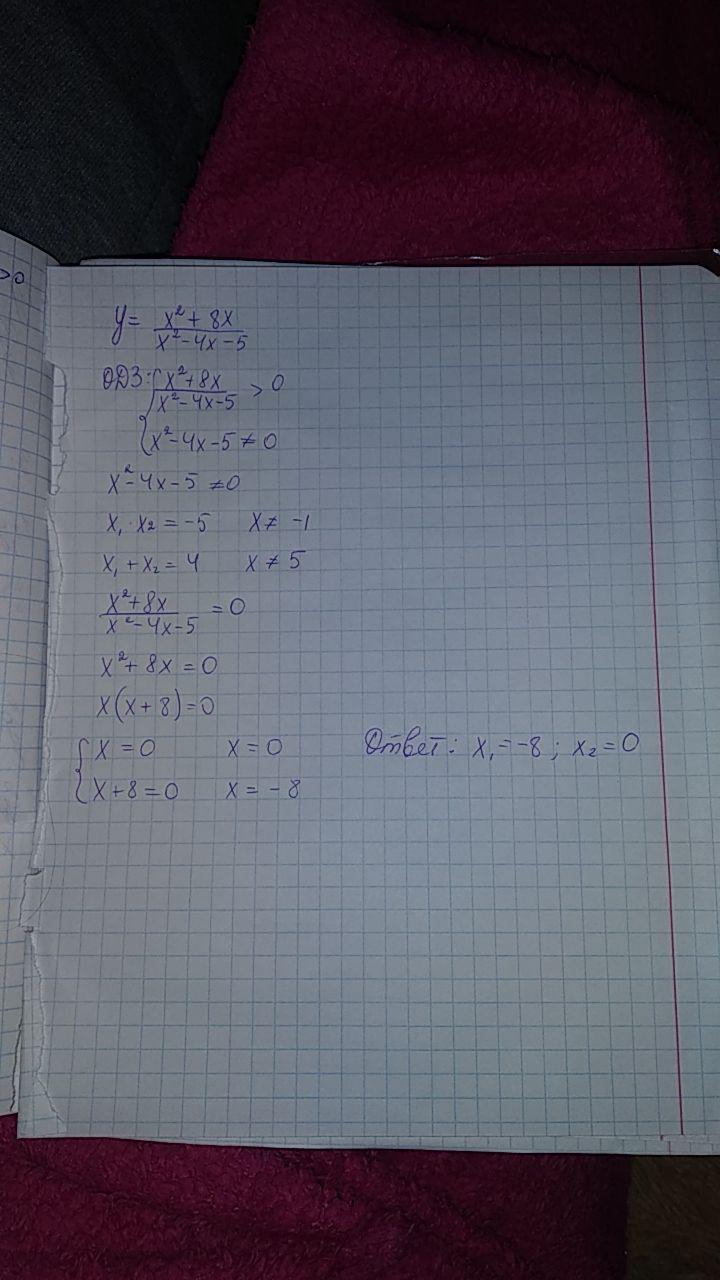 >0
y = (x² + 8x)/(x² - 4x - 5)
ОДЗ: { (x² + 8x)/(x² - 4x - 5) > 0
x² - 4x - 5 ≠ 0
x² - 4x - 5 ≠ 0
x₁ · x₂ = -5 x ≠ -1
x₁ + x₂ = 4 x ≠ 5
(x² + 8x)/(x² - 4x - 5) = 0
x² + 8x = 0
x(x + 8) = 0
{ x = 0 x = 0 Ответ: x₁ = -8 ; x₂ = 0
x + 8 = 0 x = -8